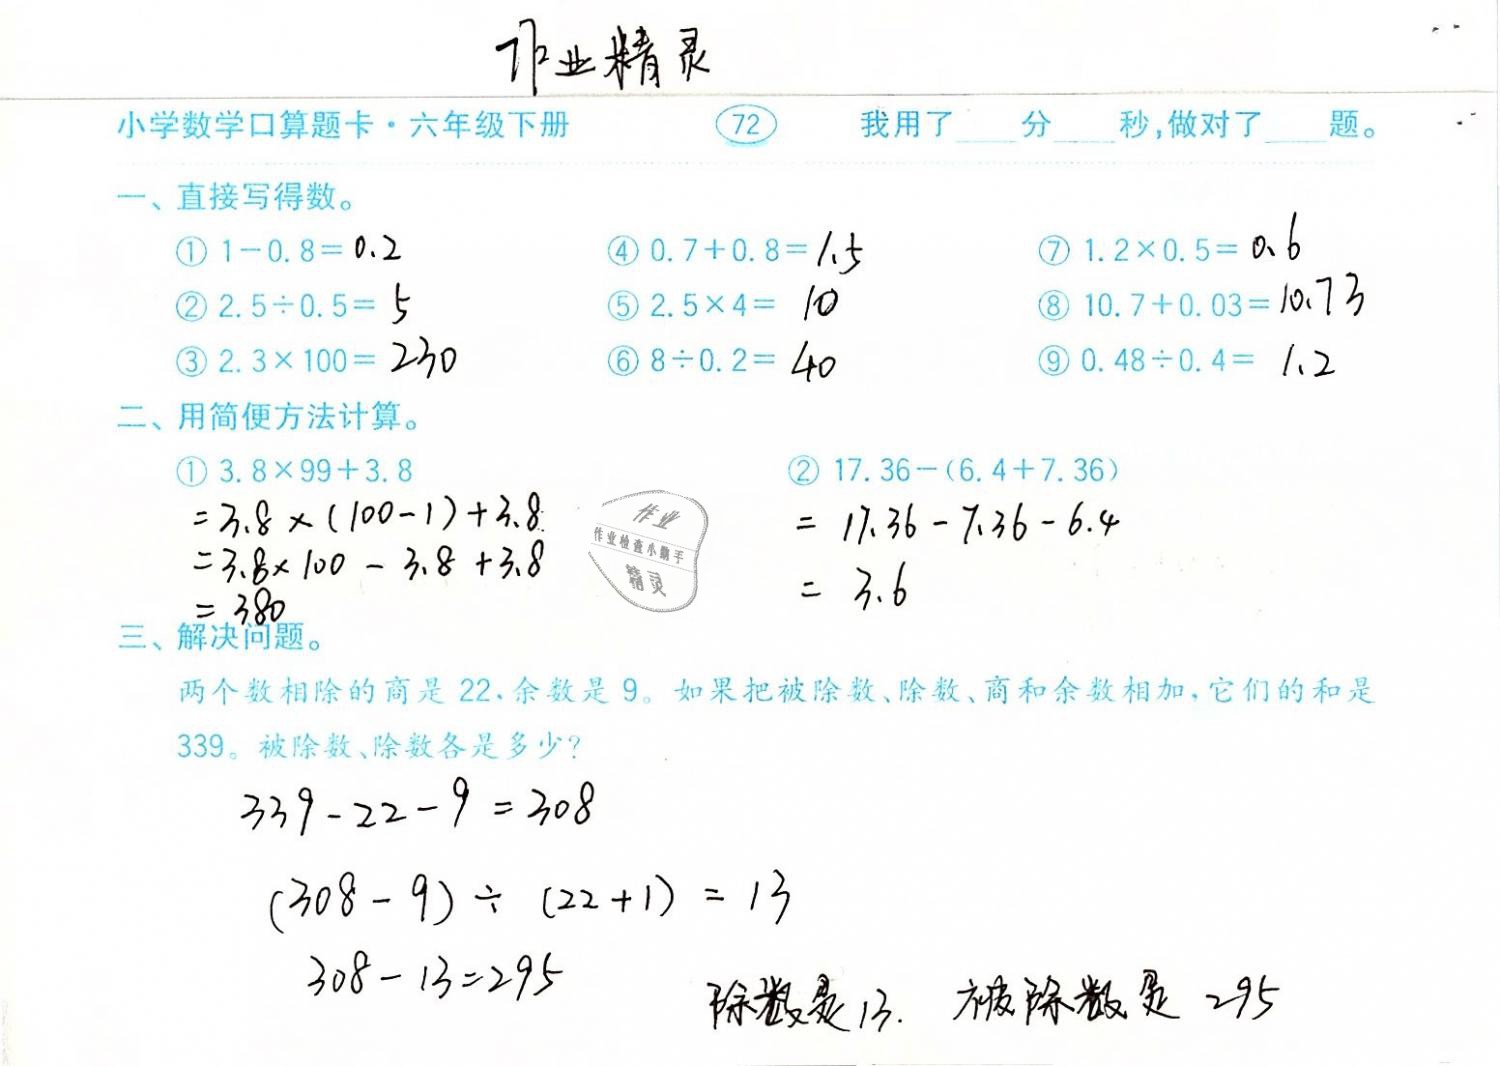 作业精灵
小学数学口算题卡·六年级下册 72 我用了____分____秒,做对了____题。
一、直接写得数。
① 1-0.8=0.2 ④ 0.7+0.8=1.5 ⑦ 1.2×0.5=0.6
② 2.5÷0.5=5 ⑤ 2.5×4=10 ⑧ 10.7+0.03=10.73
③ 2.3×100=230 ⑥ 8÷0.2=40 ⑨ 0.48÷0.4=1.2
二、用简便方法计算。
① 3.8×99+3.8 ② 17.36-(6.4+7.36)
=3.8×(100-1)+3.8 = 17.36-7.36-6.4
=3.8×100-3.8+3.8 = 3.6
=380
作业
作业检查小帮手
精灵
三、解决问题。
两个数相除的商是 22,余数是 9。如果把被除数、除数、商和余数相加,它们的和是
339。被除数、除数各是多少?
339-22-9=308
(308-9)÷(22+1)=13
308-13=295
除数是13. 被除数是 295